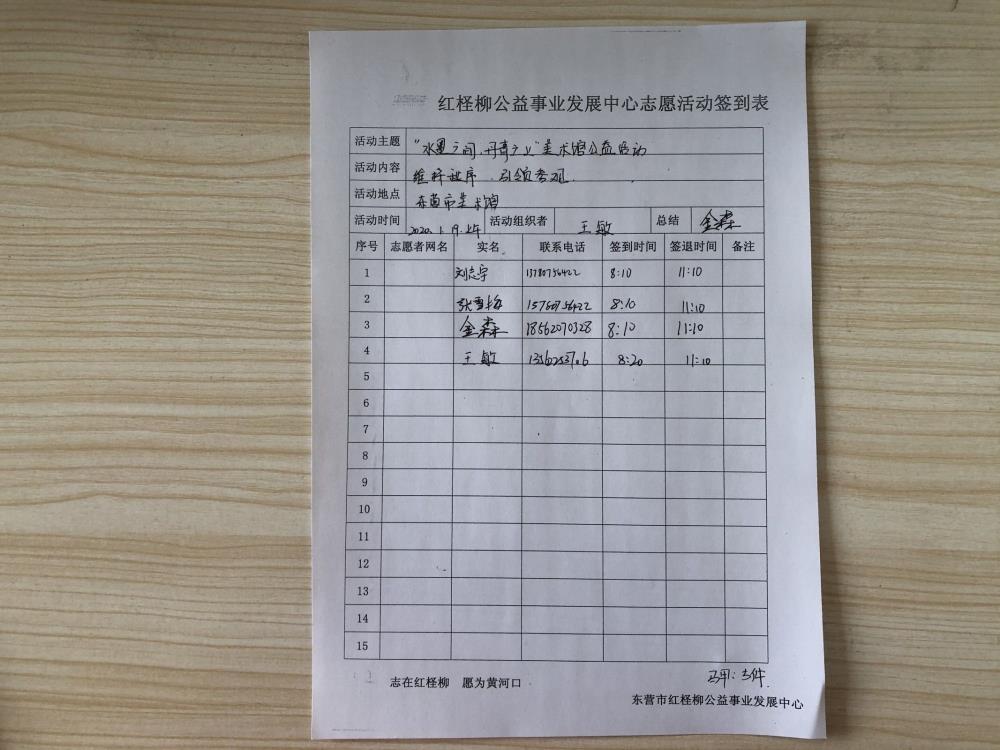 红柽柳公益事业发展中心志愿活动签到表
活动主题 "水墨之间，丹青之上"美术馆公益活动
活动内容 维持秩序、引领参观.
活动地点 东营市美术馆
活动时间 2020.1.19.上午 活动组织者 王敏 总结 金森
序号 志愿者网名 实名 联系电话 签到时间 签退时间 备注
1 刘志宇 15780756422 8:10 11:10
2 张雪梅 15780756422 8:10 11:10
3 金森 18562070328 8:10 11:10
4 王敏 8:20 11:10
5
6
7
8
9
10
11
12
13
14
15
马甲：5件.
志在红柽柳 愿为黄河口
东营市红柽柳公益事业发展中心